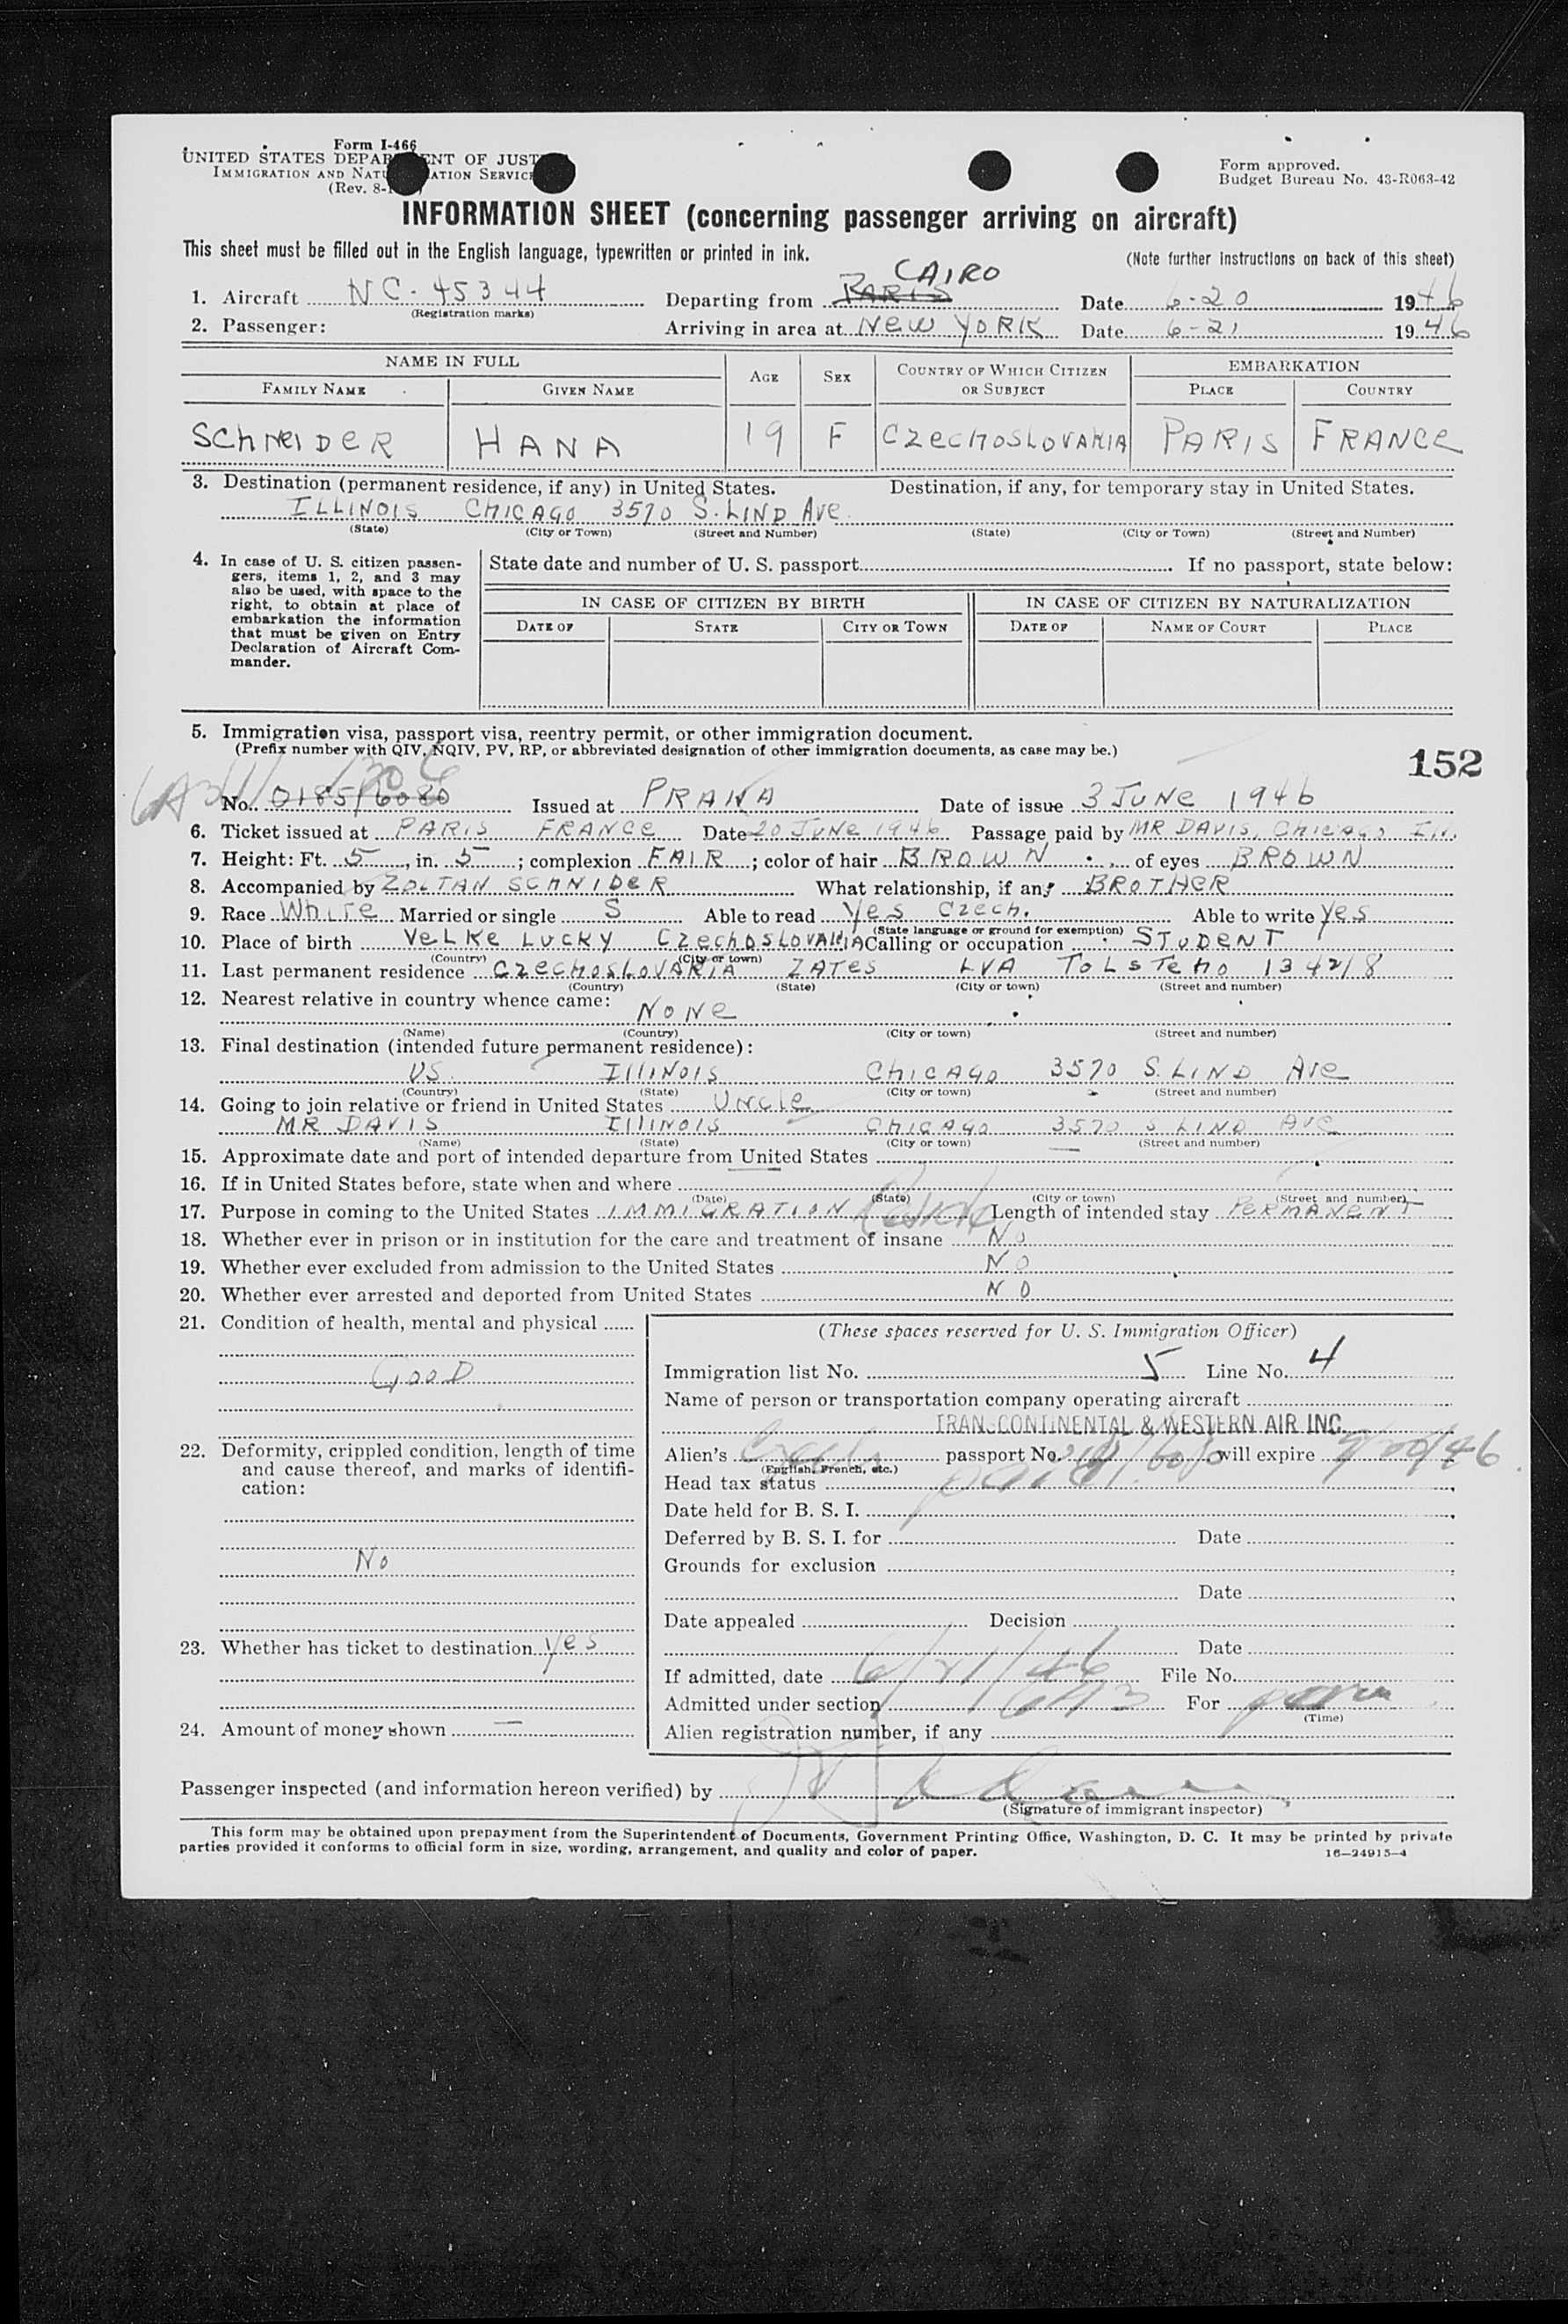 Form I-466
UNITED STATES DEPARTMENT OF JUSTICE
IMMIGRATION AND NATURALIZATION SERVICE
(Rev. 8-
Form approved.
Budget Bureau No. 43-R063-42
INFORMATION SHEET (concerning passenger arriving on aircraft)
This sheet must be filled out in the English language, typewritten or printed in ink.
(Note further instructions on back of this sheet)
CAIRO
1. Aircraft NC-45344 Departing from PARIS Date 6-20 1946
(Registration marks)
2. Passenger: Arriving in area at New YORK Date 6-21 1946
NAME IN FULL AGE SEX COUNTRY OF WHICH CITIZEN OR SUBJECT EMBARKATION
FAMILY NAME GIVEN NAME PLACE COUNTRY
SCHNEIDER HANA 19 F CZECHOSLOVAKIA PARIS FRANCE
3. Destination (permanent residence, if any) in United States. Destination, if any, for temporary stay in United States.
ILLINOIS CHICAGO 3570 S. LIND Ave
(State) (City or Town) (Street and Number) (State) (City or Town) (Street and Number)
4. In case of U. S. citizen passen-
gers, items 1, 2, and 3 may
also be used, with space to the
right, to obtain at place of
embarkation the information
that must be given on Entry
Declaration of Aircraft Com-
mander.
State date and number of U. S. passport If no passport, state below:
IN CASE OF CITIZEN BY BIRTH IN CASE OF CITIZEN BY NATURALIZATION
DATE OF STATE CITY OR TOWN DATE OF NAME OF COURT PLACE
5. Immigration visa, passport visa, reentry permit, or other immigration document.
(Prefix number with QIV, NQIV, PV, RP, or abbreviated designation of other immigration documents, as case may be.)
152
No. 0185/6080 Issued at PRAHA Date of issue 3 JUNE 1946
6. Ticket issued at PARIS FRANCE Date 20 JUNE 1946 Passage paid by MR DAVIS, CHICAGO Ill.
7. Height: Ft. 5, in. 5; complexion FAIR; color of hair BROWN of eyes BROWN
8. Accompanied by ZOLTAN SCHNIDER What relationship, if any BROTHER
9. Race White Married or single S Able to read Yes Czech. Able to write Yes
(State language or ground for exemption)
10. Place of birth VELKE LUCKY CZECHOSLOVAKIA Calling or occupation STUDENT
(Country) (City or town)
11. Last permanent residence CZECHOSLOVAKIA ZATES LVA TOLSTEHO 1342/8
(Country) (State) (City or town) (Street and number)
12. Nearest relative in country whence came:
NONE
(Name) (Country) (City or town) (Street and number)
13. Final destination (intended future permanent residence):
US. ILLINOIS CHICAGO 3570 S. LIND Ave
(Country) (State) (City or town) (Street and number)
14. Going to join relative or friend in United States Uncle
MR DAVIS ILLINOIS CHICAGO 3570 S LIND AVE
(Name) (State) (City or town) (Street and number)
15. Approximate date and port of intended departure from United States —
16. If in United States before, state when and where
(Date) (State) (City or town) (Street and number)
17. Purpose in coming to the United States IMMIGRATION Reside Length of intended stay PERMANENT
18. Whether ever in prison or in institution for the care and treatment of insane NO
19. Whether ever excluded from admission to the United States NO
20. Whether ever arrested and deported from United States NO
21. Condition of health, mental and physical
GOOD
22. Deformity, crippled condition, length of time
and cause thereof, and marks of identifi-
cation:
No
23. Whether has ticket to destination Yes
24. Amount of money shown —
(These spaces reserved for U. S. Immigration Officer)
Immigration list No. 5 Line No. 4
Name of person or transportation company operating aircraft
TRANSCONTINENTAL & WESTERN AIR INC.
Alien's Czech passport No. will expire
(English, French, etc.)
Head tax status paid
Date held for B. S. I.
Deferred by B. S. I. for Date
Grounds for exclusion
Date
Date appealed Decision
Date
If admitted, date 6/21/46 File No.
Admitted under section For perm
(Time)
Alien registration number, if any
Passenger inspected (and information hereon verified) by
(Signature of immigrant inspector)
This form may be obtained upon prepayment from the Superintendent of Documents, Government Printing Office, Washington, D. C. It may be printed by private
parties provided it conforms to official form in size, wording, arrangement, and quality and color of paper.
16—24915-4